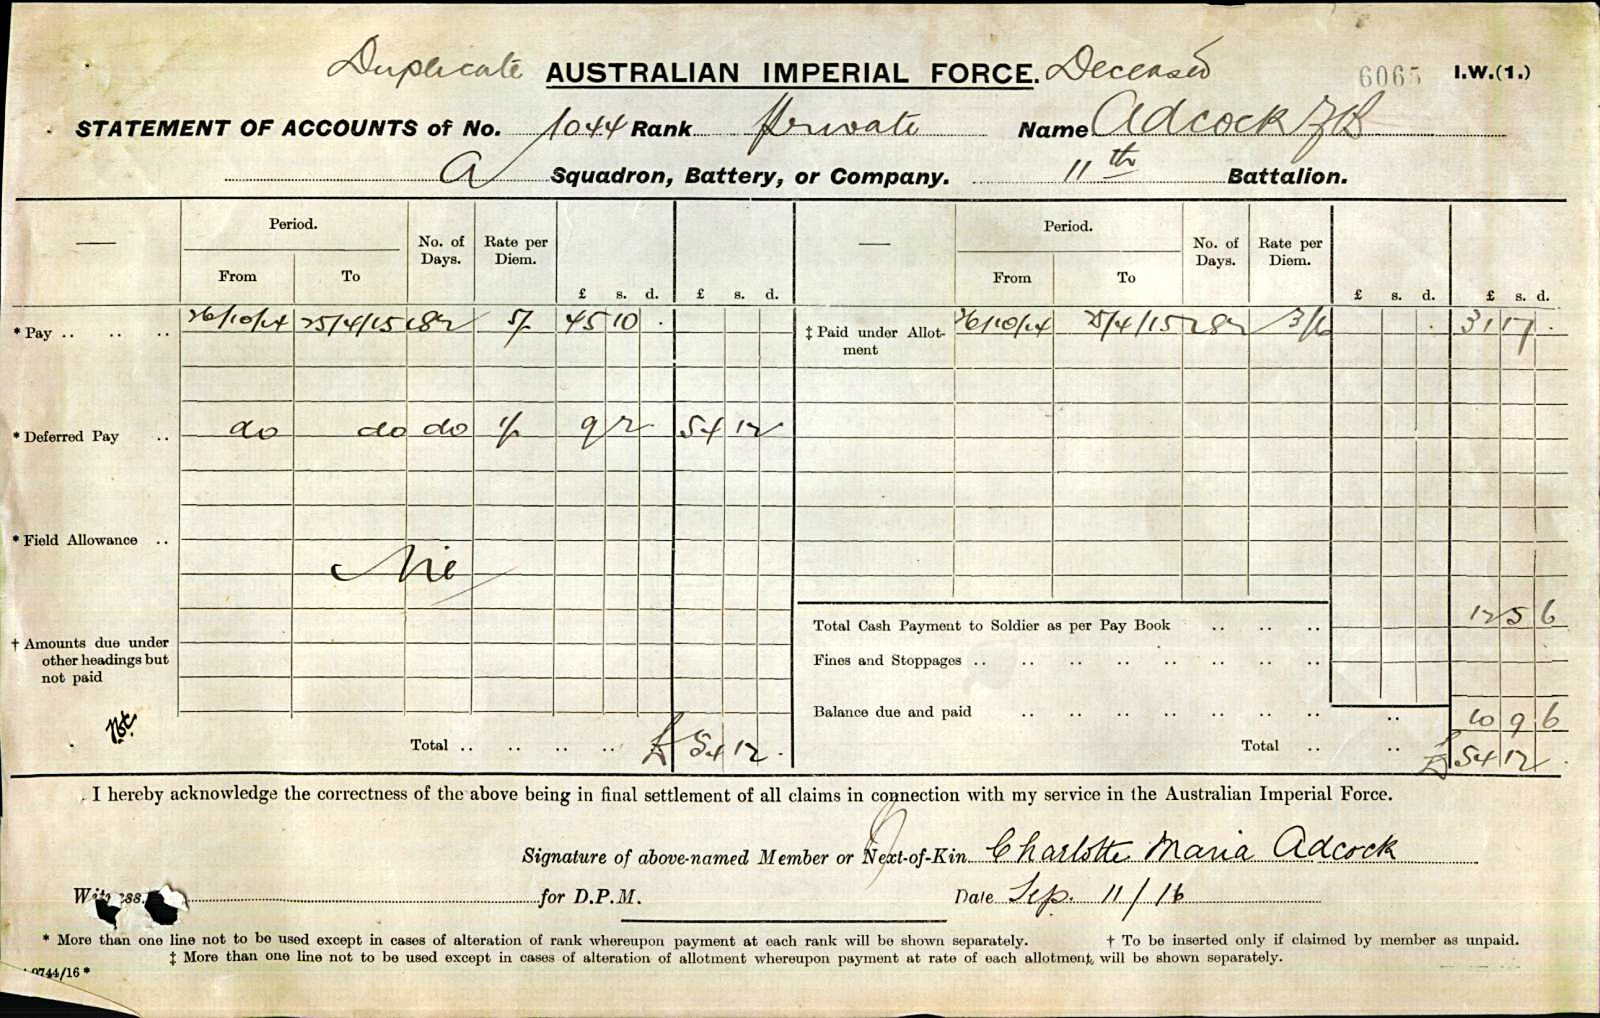 Duplicate AUSTRALIAN IMPERIAL FORCE. Deceased 6065 I.W.(1.)
STATEMENT OF ACCOUNTS of No. 1044 Rank Private Name Adcock
A Squadron, Battery, or Company. 11th Battalion.
Period. No. of Days. Rate per Diem. Period. No. of Days. Rate per Diem.
From To £ s. d. £ s. d. From To £ s. d. £ s. d.
* Pay .. .. .. 26/10/14 25/4/15 182 5/- 45 10 . ‡ Paid under Allotment 26/10/14 25/4/15 182 3/6 31 17 .
* Deferred Pay .. do do do 1/- 9 2 54 12
* Field Allowance ..
Nil
† Amounts due under
other headings but
not paid
Total Cash Payment to Soldier as per Pay Book .. .. .. 12 5 6
Fines and Stoppages .. .. .. .. .. .. .. ..
Balance due and paid .. .. .. .. .. .. .. .. 10 9 6
Total .. .. .. .. £ 54 12 . Total .. .. £ 54 12 .
I hereby acknowledge the correctness of the above being in final settlement of all claims in connection with my service in the Australian Imperial Force.
Signature of above-named Member or Next-of-Kin Charlotte Maria Adcock
Witness for D.P.M. Date Sep. 11/16
* More than one line not to be used except in cases of alteration of rank whereupon payment at each rank will be shown separately. † To be inserted only if claimed by member as unpaid.
‡ More than one line not to be used except in cases of alteration of allotment whereupon payment at rate of each allotment, will be shown separately.
9744/16 *